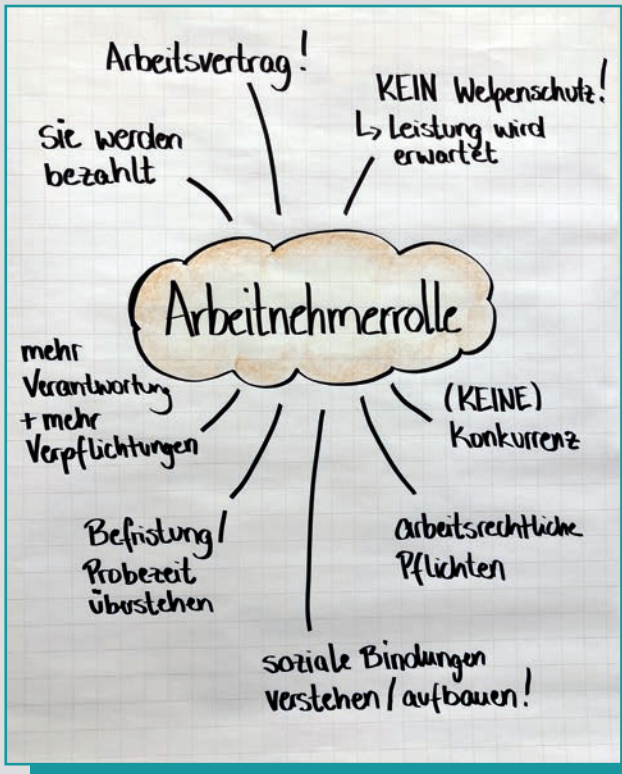 Arbeitsvertrag!
KEIN Welpenschutz!
↳ Leistung wird
erwartet
Sie werden
bezahlt
Arbeitnehmerrolle
mehr
Verantwortung
+ mehr
Verpflichtungen
(KEINE)
Konkurrenz
Befristung/
Probezeit
überstehen
arbeitsrechtliche
Pflichten
soziale Bindungen
verstehen / aufbauen!